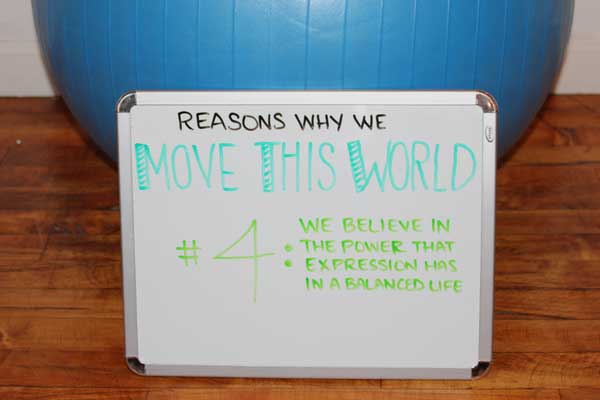 REASONS WHY WE
MOVE THIS WORLD
#4:
WE BELIEVE IN
THE POWER THAT
EXPRESSION HAS
IN A BALANCED LIFE